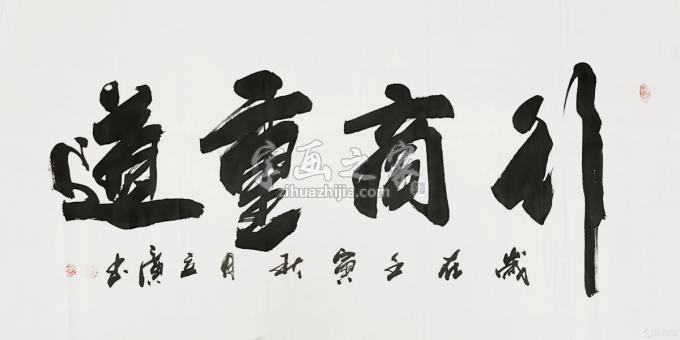 行商重道
歲在壬寅秋月立廣書
字画之家
zihuazhijia.com